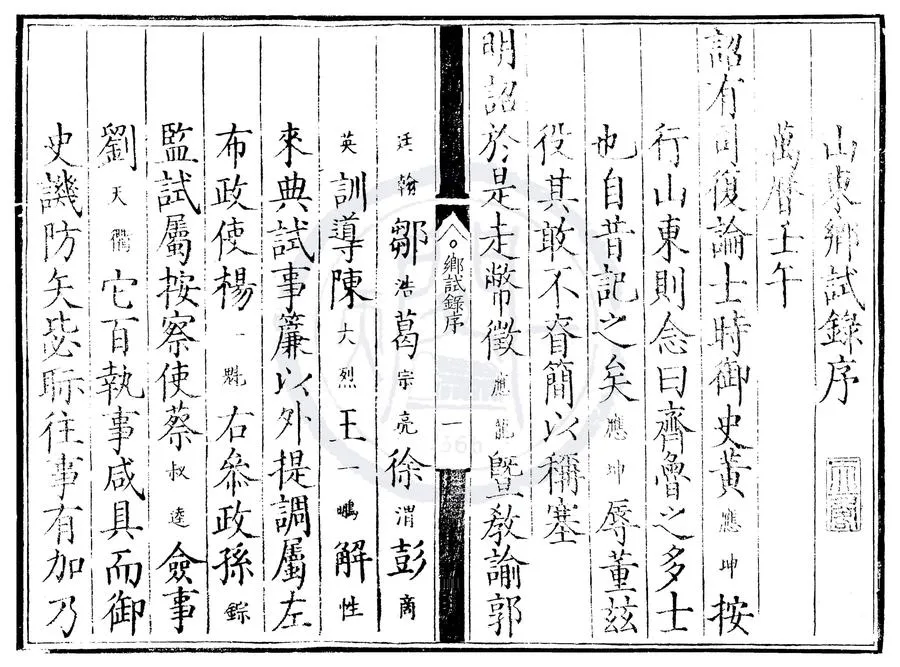 山東鄉試錄序
萬曆壬午
詔有司復論士時御史黃應坤按
行山東則念曰齊魯之多士
也自昔記之矣應坤辱董茲
役其敢不眘簡以稱塞
明詔於是走幣徵應龍曁敎諭郭
鄉試錄序
一
廷翰鄒浩葛宗亮徐渭彭商
英訓導陳大烈王一鵰解性
來典試事簾以外提調屬左
布政使楊一魁右叅政孫錝
監試屬按察使蔡叔逵僉事
劉天衢它百執事咸具而御
史譏防矢毖眎往事有加乃